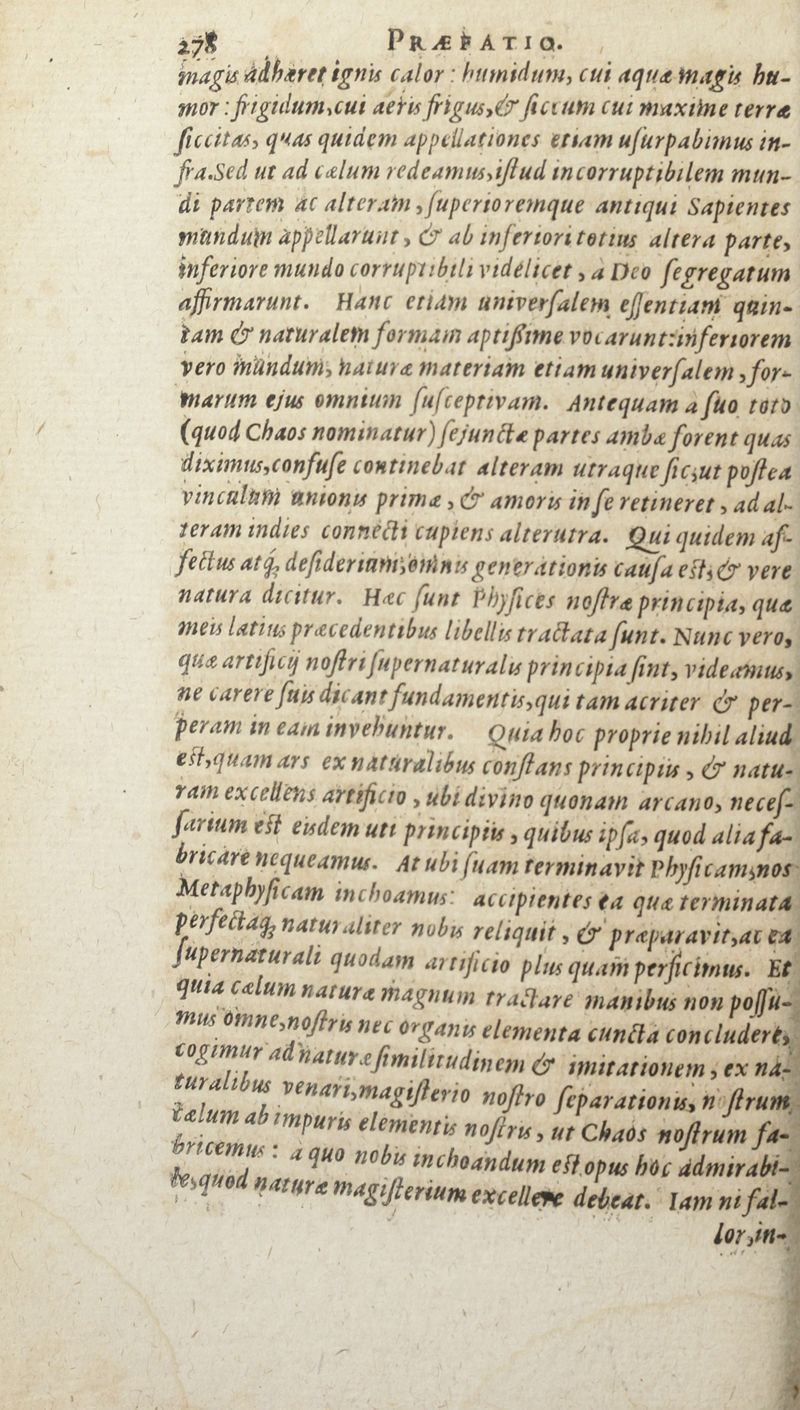 278 PRÆFATIO.
magis adhæret ignis calor : humidum, cui aquæ magis hu-
mor : frigidum, cui aeris frigus, & siccum cui maxime terræ
siccitas, quas quidem appellationes etiam usurpabimus in-
fra. Sed ut ad cælum redeamus, istud incorruptibilem mun-
di partem ac alteram, superioremque antiqui Sapientes
mundum appellarunt, & ab inferiori totius altera parte,
inferiore mundo corruptibili videlicet, à Deo segregatum
affirmarunt. Hanc etiam universalem essentiam quin-
tam & naturalem formam aptissime vocarunt: inferiorem
vero mundum, naturæ materiam etiam universalem, for-
marum ejus omnium susceptivam. Antequam a suo toto
(quod Chaos nominatur) sejunctæ partes ambæ forent quas
diximus, confuse continebat alteram utraque sic, ut postea
vinculum unionis primæ, & amoris in se retineret, ad al-
teram indies connecti cupiens alterutra. Qui quidem af-
fectus atq; desiderium, omnis generationis causa est, & vere
natura dicitur. Hæc sunt Physices nostræ principia, quæ
meis latius præcedentibus libellis tractata sunt. Nunc vero,
quæ artificij nostri supernaturalis principia sint, videamus,
ne carere suis dicant fundamentis, qui tam acriter & per-
peram in eam invehuntur. Quia hoc proprie nihil aliud
est, quam ars ex naturalibus constans principiis, & natu-
ram excellens artificio, ubi divino quonam arcano, neces-
sarium est eisdem uti principiis, quibus ipsa, quod alia fa-
bricare nequeamus. At ubi suam terminavit Physicam, nos
Metaphysicam inchoamus: accipientes ea quæ terminata
perfectaq; naturaliter nobis reliquit, & præparavit, ac ea
supernaturali quodam artificio plus quam perficimus. Et
quia cælum naturæ magnum tractare manibus non possu-
mus omne, nostris nec organis elementa cuncta concludere,
cogimur ad naturæ similitudinem & imitationem, ex na-
turalibus venari, magisterio nostro separationis, nostrum
cælum ab impuris elementis nostris, ut Chaos nostrum fa-
bricemus : a quo nobis inchoandum est opus hoc admirabi-
le, quod naturæ magisterium excellere debeat. Iam ni fal-
lor, in-